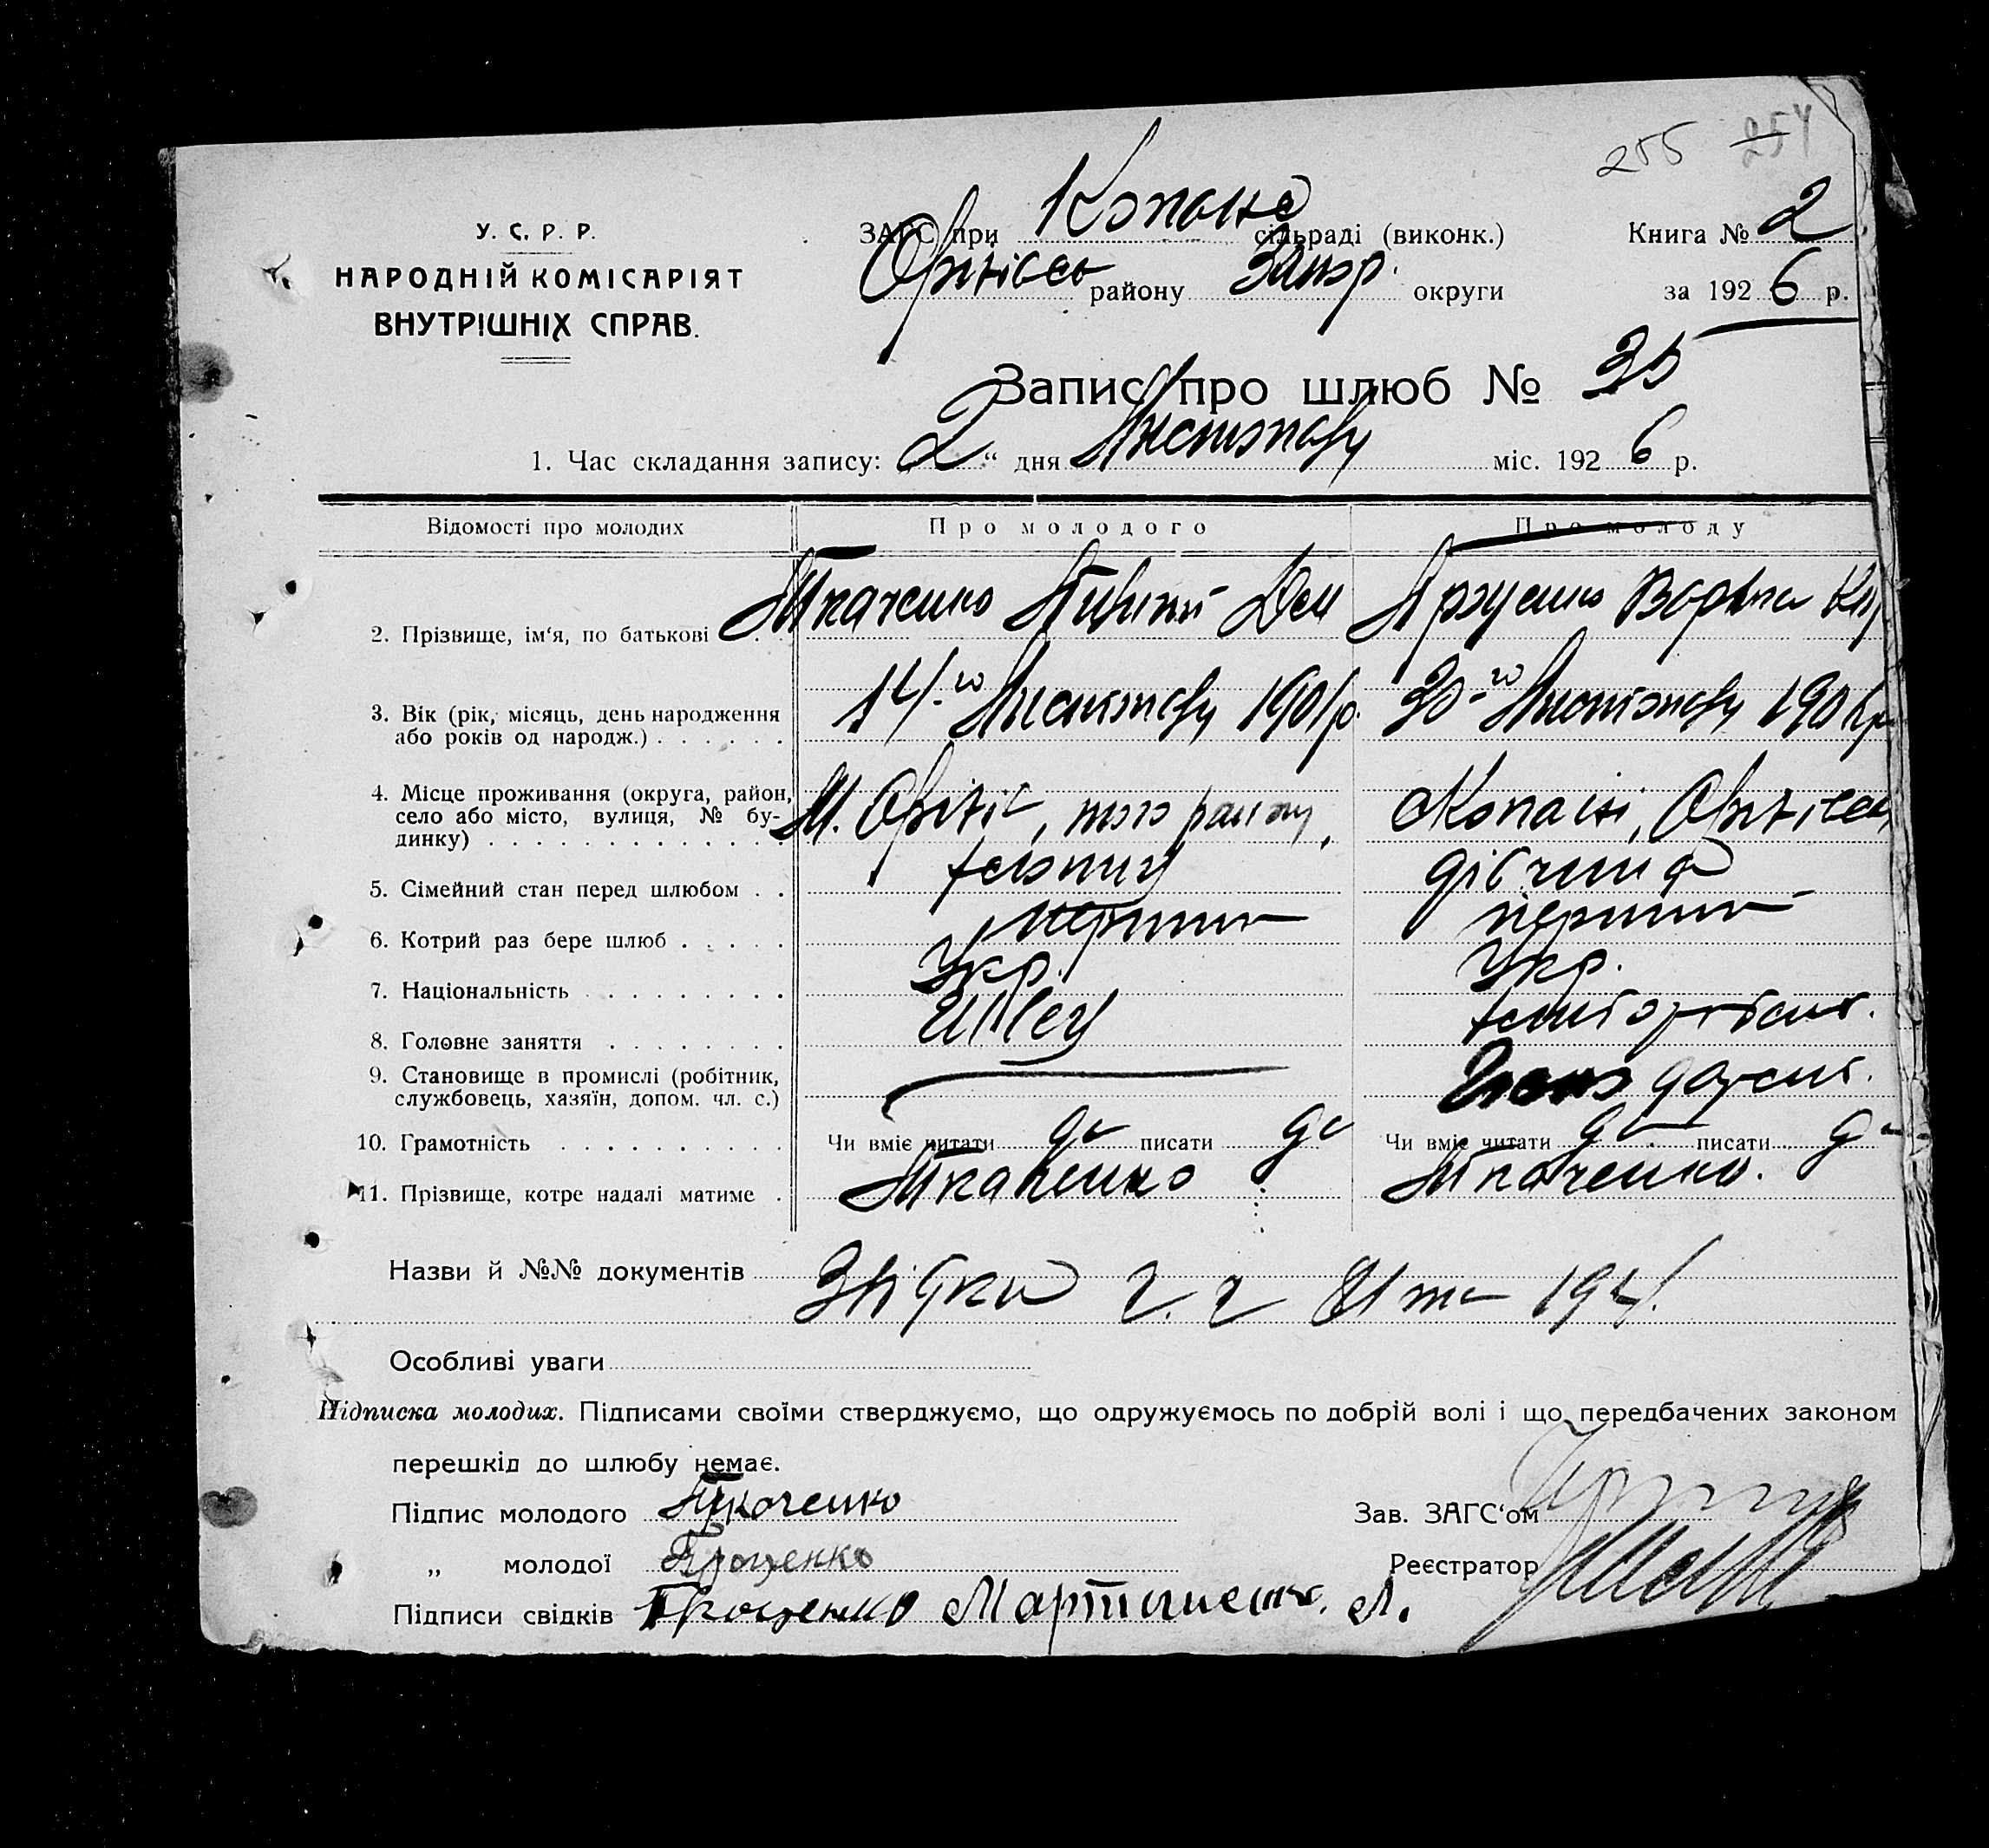 255 254
У. С. Р. Р.
НАРОДНІЙ КОМІСАРІЯТ
ВНУТРІШНІХ СПРАВ.
ЗАГС при Копане сільраді (виконк.) Книга № 2
Оріхівсь району Запор. округи за 1926 р.
Запис про шлюб № 35
1. Час складання запису: 2 " дня Листопаду міс. 1926 р.
Відомості про молодих Про молодого Про молоду
2. Прізвище, ім'я, по батькові Ткаченко Дем Проценко
3. Вік (рік, місяць, день народження 14-го Листопаду 190 р. 30-го Листопаду 190
або років од народж.)
4. Місце проживання (округа, район, М. Оріхів, того району, Копані, Оріхівськ
село або місто, вулиця, № бу-
динку)
5. Сімейний стан перед шлюбом дівчина
6. Котрий раз бере шлюб перший перший
7. Національність Укр. Укр.
8. Головне заняття Швец
9. Становище в промислі (робітник,
службовець, хазяїн, допом. чл. с.)
10. Грамотність Чи вміє читати да писати да Чи вміє читати да писати да
11. Прізвище, котре надалі матиме Ткаченко Ткаченко.
Назви й №№ документів
Особливі уваги
Підписка молодих. Підписами своїми стверджуємо, що одружуємось по добрій волі і що передбачених законом
перешкід до шлюбу немає.
Підпис молодого Ткаченко Зав. ЗАГС'ом
„ молодої Проценко Реєстратор
Підписи свідків Проценко Л.